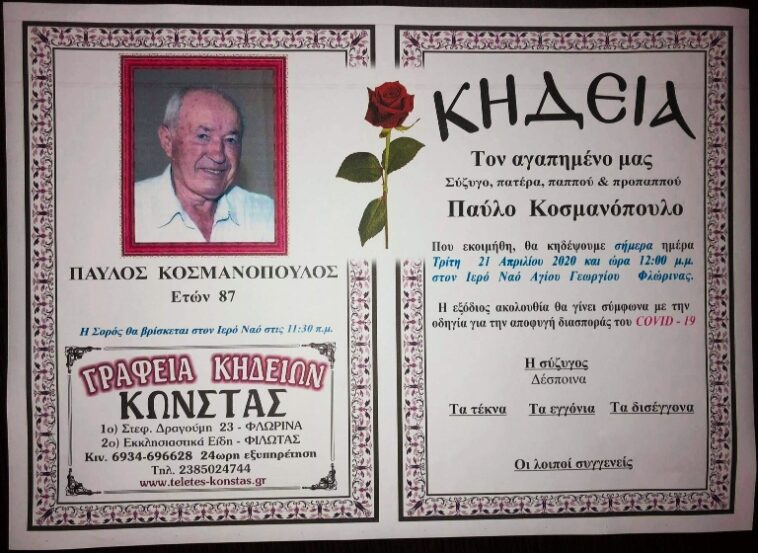 ΠΑΥΛΟΣ ΚΟΣΜΑΝΟΠΟΥΛΟΣ
Ετών 87
Η Σορός θα βρίσκεται στον Ιερό Ναό στις 11:30 π.μ.
ΓΡΑΦΕΙΑ ΚΗΔΕΙΩΝ
ΚΩΝΣΤΑΣ
1ο) Στεφ. Δραγούμη 23 - ΦΛΩΡΙΝΑ
2ο) Εκκλησιαστικά Είδη - ΦΙΛΩΤΑΣ
Κιν. 6934-696628 24ωρη εξυπηρέτηση
Τηλ. 2385024744
www.teletes-konstas.gr
ΚΗΔΕΙΑ
Τον αγαπημένο μας
Σύζυγο, πατέρα, παππού & προπαππού
Παύλο Κοσμανόπουλο
Που εκοιμήθη, θα κηδέψουμε σήμερα ημέρα
Τρίτη 21 Απριλίου 2020 και ώρα 12:00 μ.μ.
στον Ιερό Ναό Αγίου Γεωργίου Φλώρινας.
Η εξόδιος ακολουθία θα γίνει σύμφωνα με την
οδηγία για την αποφυγή διασποράς του COVID - 19
Η σύζυγος
Δέσποινα
Τα τέκνα Τα εγγόνια Τα δισέγγονα
Οι λοιποί συγγενείς